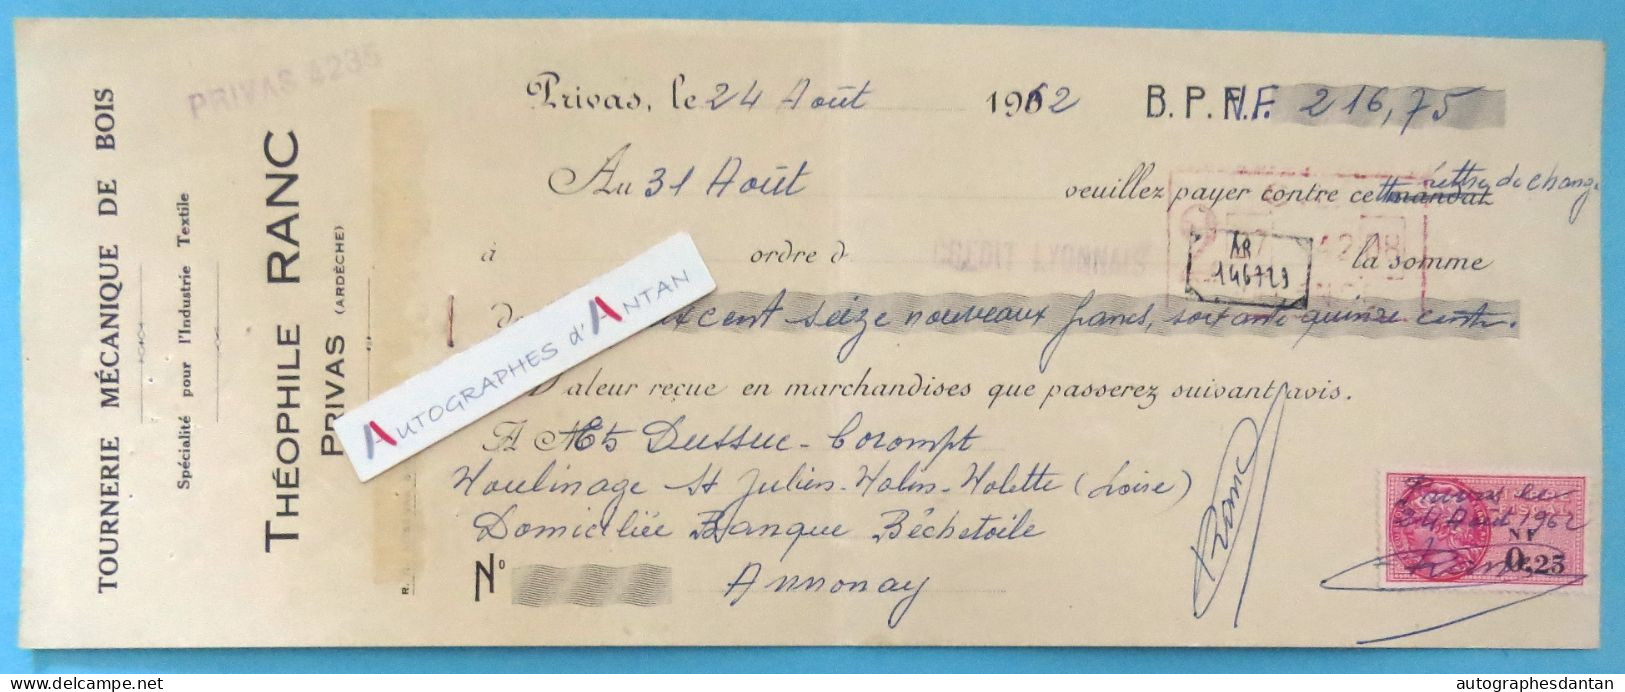 TOURNERIE MÉCANIQUE DE BOIS
Spécialité pour l'Industrie Textile
THÉOPHILE RANC
PRIVAS (ARDÈCHE)
PRIVAS 4235
Privas, le 24 Août 1962 B. P. N.F. 216,75
Au 31 Août veuillez payer contre cette mandat lettre de change
à ordre de CRÉDIT LYONNAIS la somme
AR
146729
de cent seize nouveaux francs, soixante quinze cent.
Valeur reçue en marchandises que passerez suivant avis.
AUTOGRAPHES d'ANTAN
A M Ets Dussuc-Corompt
Moulinage St Julien-Molin-Molette (Loire)
Domiciliée Banque Béchetoile
Annonay
N°
Ranc
Privas le
24 Août 1962
NF
0,25
Ranc
autographesdantan